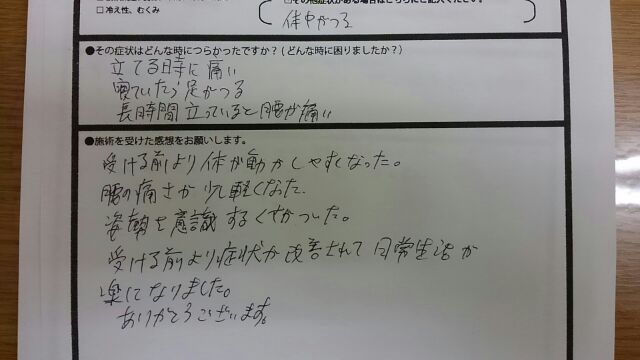 □ 冷え性、むくみ
体中がつる
●その症状はどんな時につらかったですか?(どんな時に困りましたか?)
立てる時に痛い
寝ていたら足がつる
長時間立っていると腰が痛い
●施術を受けた感想をお願いします。
受ける前より体が動かしやすくなった。
腰の痛さが少し軽くなった.
姿勢を意識するくせがついた。
受ける前より症状が改善されて日常生活が
楽になりました。
ありがとうございます。